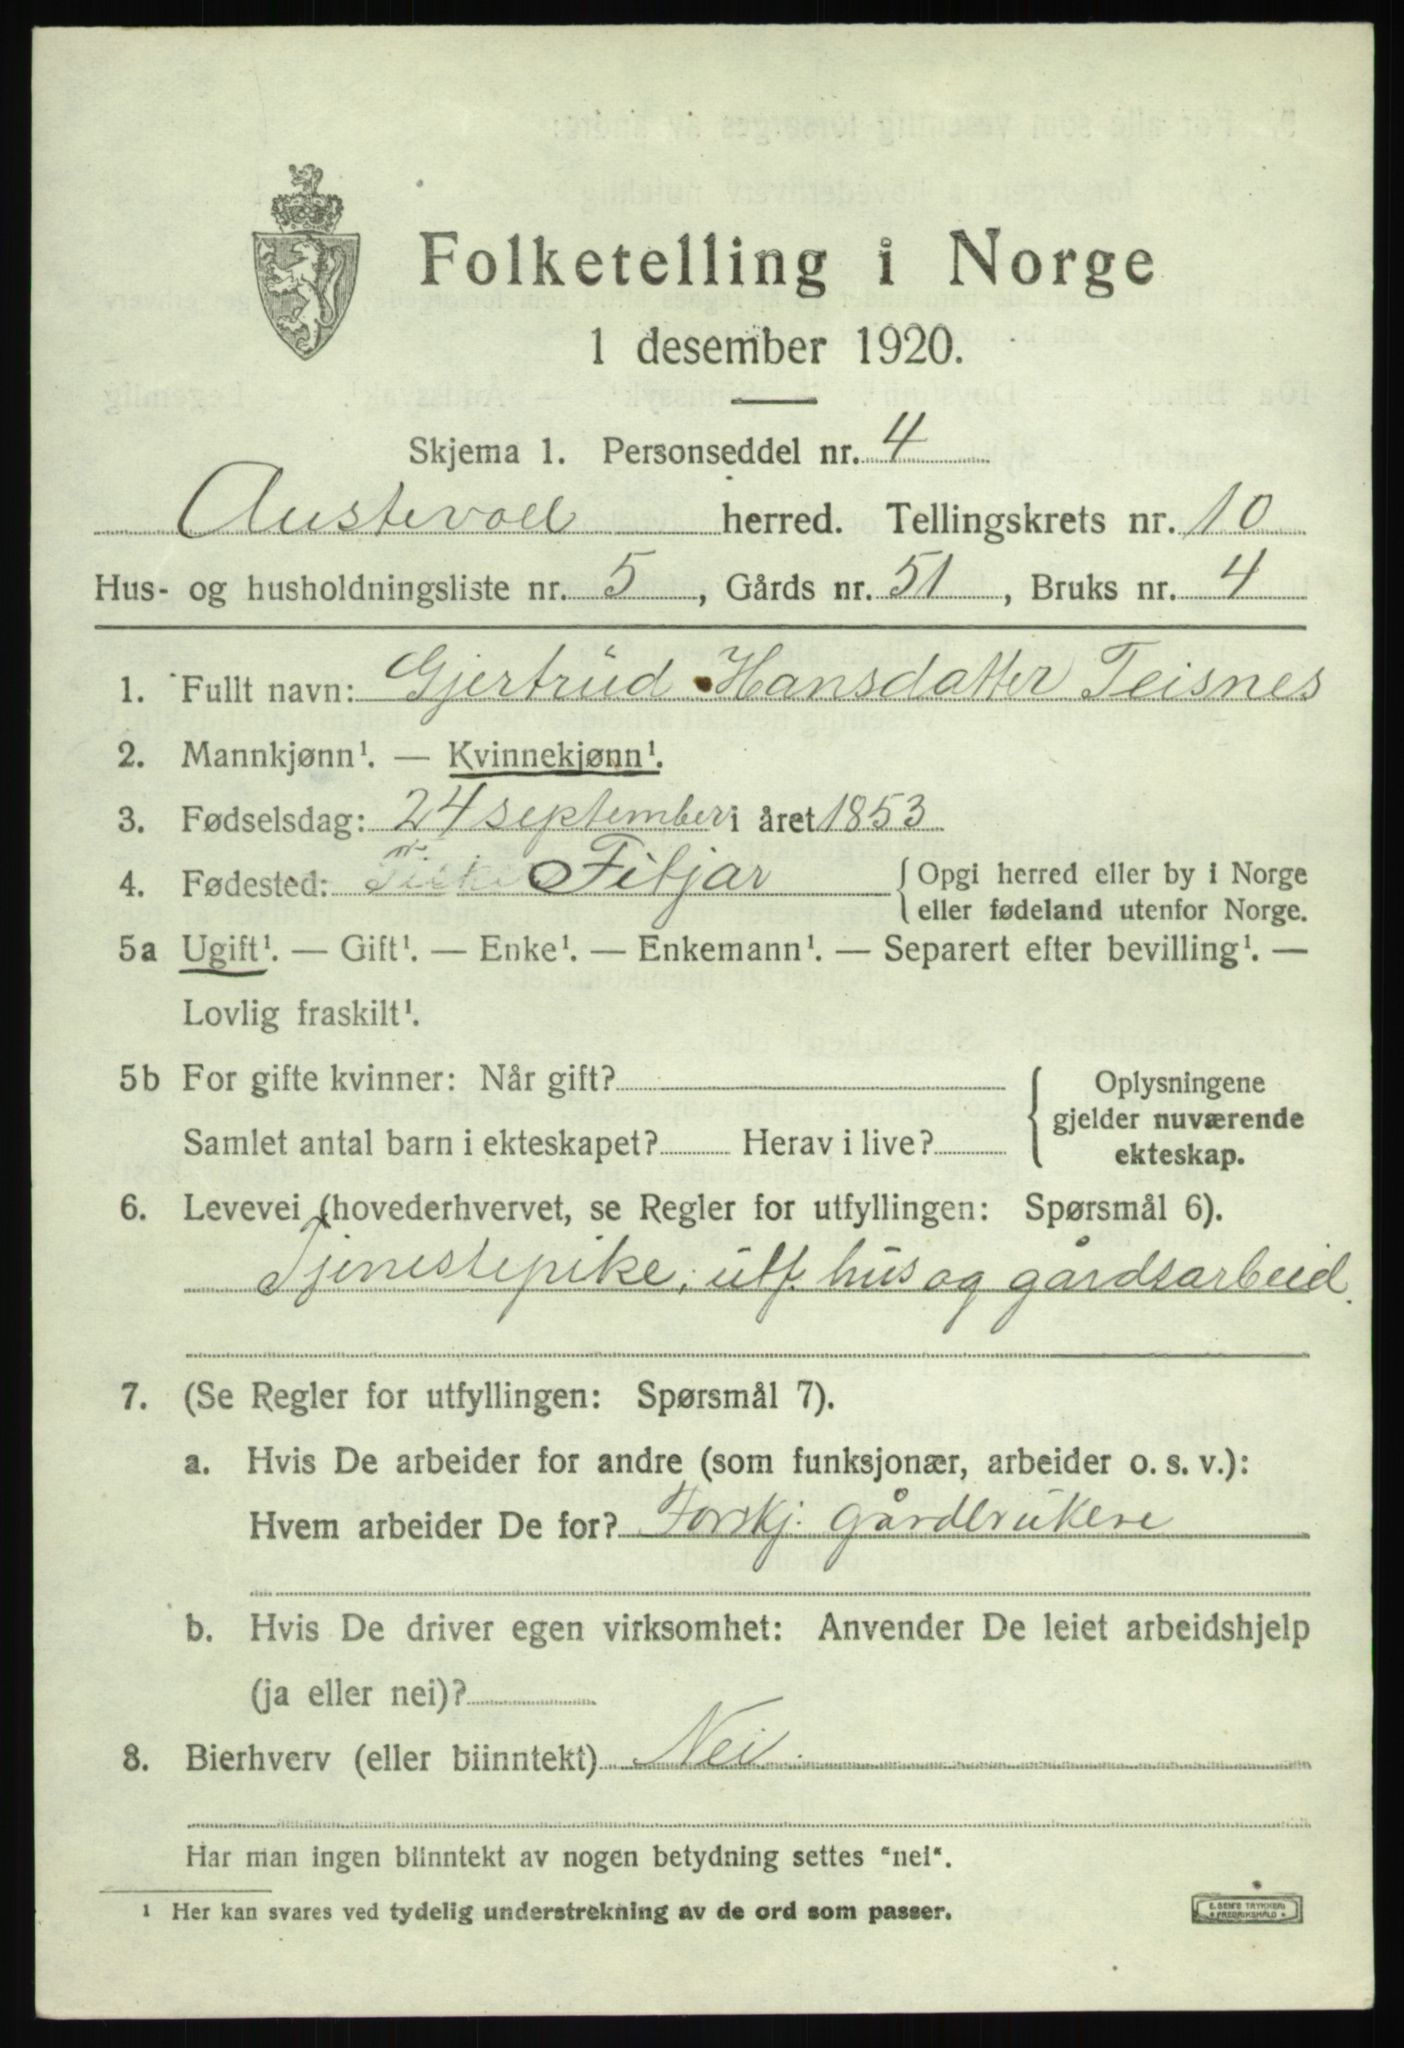 Folketelling i Norge
1 desember 1920.
Skjema 1. Personseddel nr. 4
Austevoll herred. Tellingskrets nr. 10
Hus- og husholdningsliste nr. 5, Gårds nr. 51, Bruks nr. 4
1. Fullt navn: Gjertrud Hansdatter Teisnes
2. Mannkjønn¹. — Kvinnekjønn¹.
3. Fødselsdag: 24 september i året 1853
4. Fødested: Fitjar { Opgi herred eller by i Norge
eller fødeland utenfor Norge.
5a Ugift¹. — Gift¹. — Enke¹. — Enkemann¹. — Separert efter bevilling¹. —
Lovlig fraskilt¹.
5b For gifte kvinner: Når gift? { Oplysningene
gjelder nuværende
Samlet antal barn i ekteskapet? Herav i live?
ekteskap.
6. Levevei (hovederhvervet, se Regler for utfyllingen: Spørsmål 6).
Tjenestepike, ulf. hus og gårdsarbeid.
7. (Se Regler for utfyllingen: Spørsmål 7).
a. Hvis De arbeider for andre (som funksjonær, arbeider o. s. v.):
Hvem arbeider De for? Forskj. gårdbrukere
b. Hvis De driver egen virksomhet: Anvender De leiet arbeidshjelp
(ja eller nei)?
8. Bierhverv (eller biinntekt) Nei.
Har man ingen biinntekt av nogen betydning settes "nei".
¹ Her kan svares ved tydelig understrekning av de ord som passer.
E. SEM'S TRYKKERI
* FREDRIKSHALD *